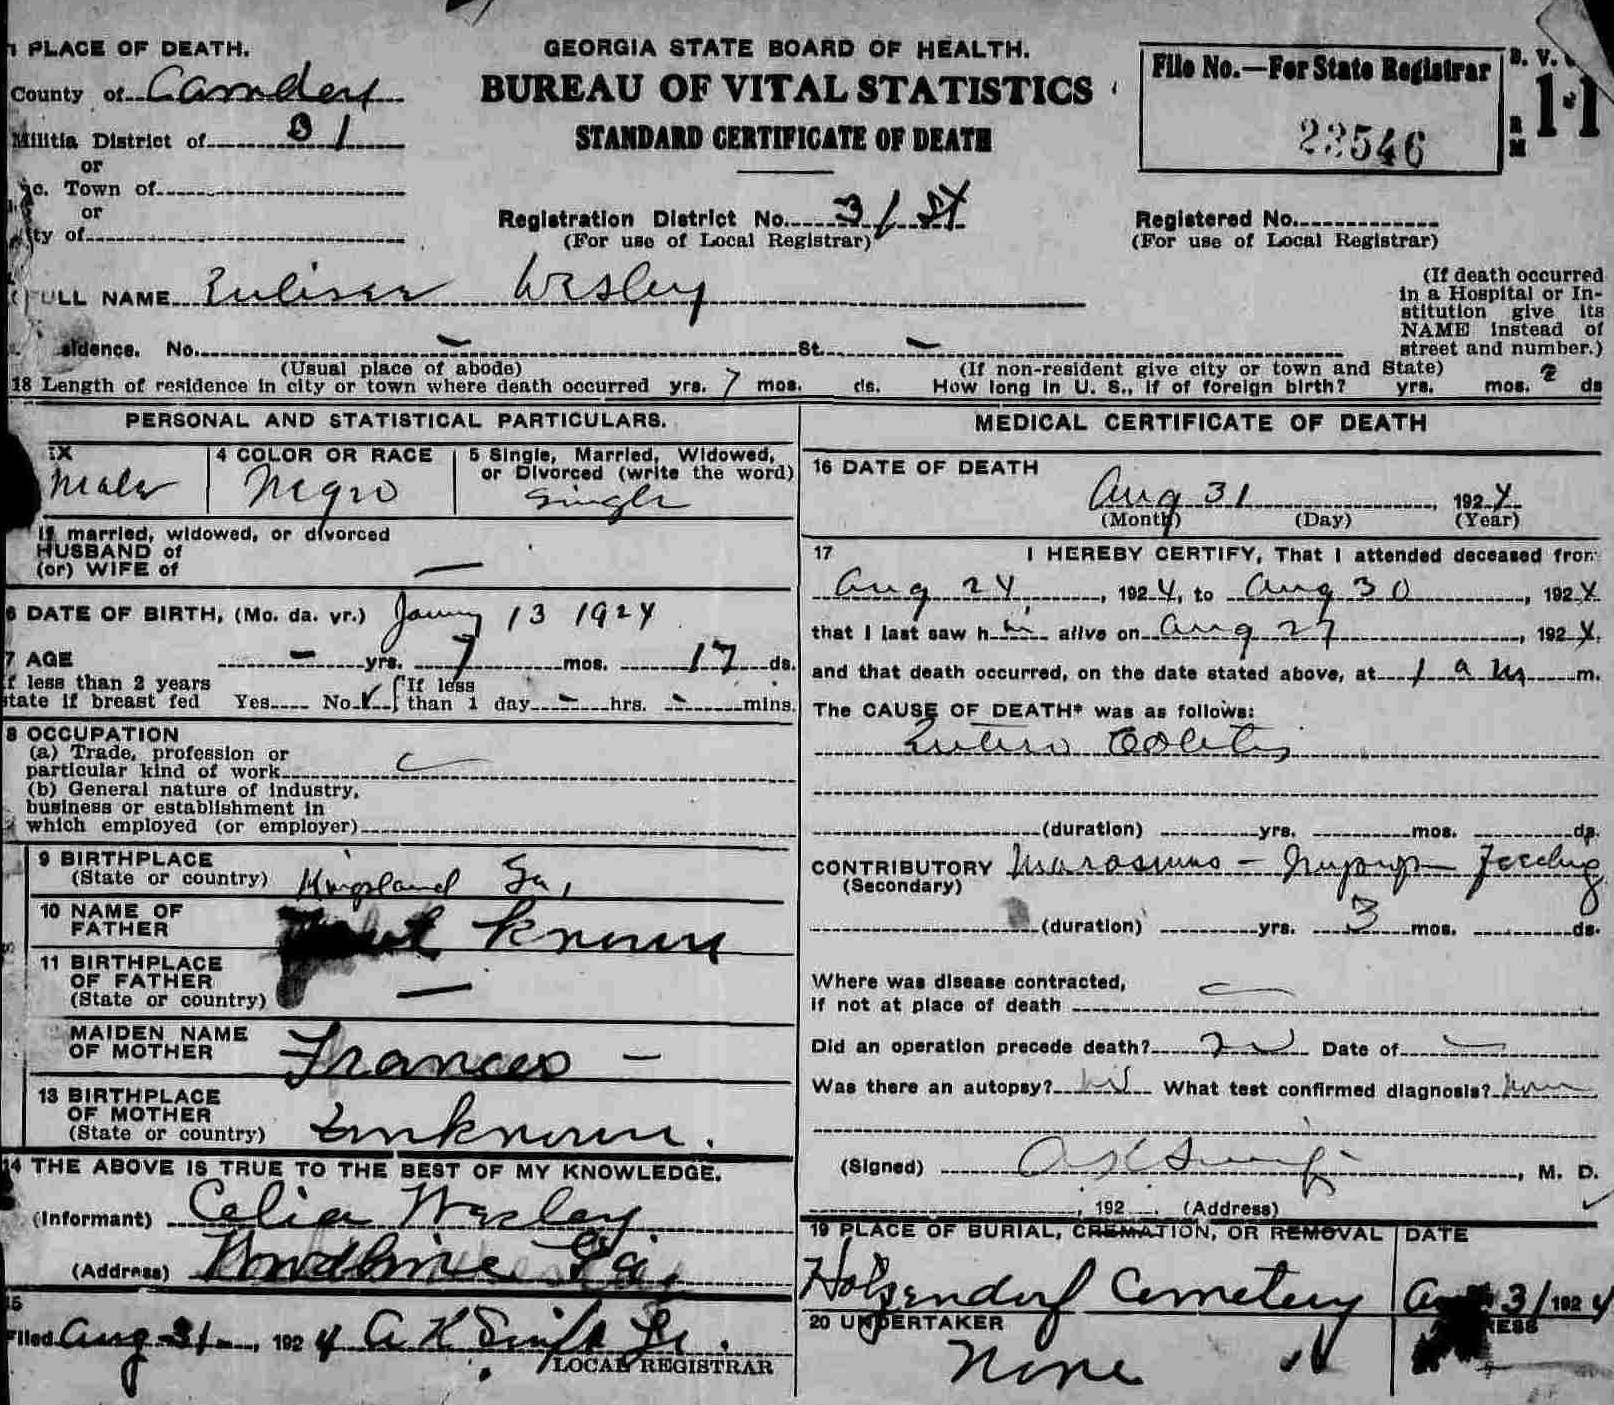 1 PLACE OF DEATH.
County of Camden
Militia District of 31
or
Inc. Town of
or
City of
GEORGIA STATE BOARD OF HEALTH.
BUREAU OF VITAL STATISTICS
STANDARD CERTIFICATE OF DEATH
Registration District No. 31 St
(For use of Local Registrar)
File No.—For State Registrar
23546
Registered No.
(For use of Local Registrar)
FULL NAME Wesley
(If death occurred
in a Hospital or In-
stitution give its
NAME instead of
street and number.)
sidence. No. – St. –
(Usual place of abode) (If non-resident give city or town and State)
18 Length of residence in city or town where death occurred yrs. 7 mos. ds. How long in U. S., if of foreign birth? yrs. mos. ds
PERSONAL AND STATISTICAL PARTICULARS.
EX
Male
4 COLOR OR RACE
Negro
5 Single, Married, Widowed,
or Divorced (write the word)
Single
If married, widowed, or divorced
HUSBAND of
(or) WIFE of —
6 DATE OF BIRTH, (Mo. da. yr.) 13 1924
7 AGE – yrs. 7 mos. 17 ds.
If less than 2 years
state if breast fed Yes No ✓ {If less
than 1 day – hrs. – mins.
8 OCCUPATION
(a) Trade, profession or
particular kind of work
(b) General nature of industry,
business or establishment in
which employed (or employer)
9 BIRTHPLACE
(State or country) Kingsland Ga,
10 NAME OF
FATHER Not known
11 BIRTHPLACE
OF FATHER
(State or country) —
MAIDEN NAME
OF MOTHER Frances —
13 BIRTHPLACE
OF MOTHER
(State or country) Unknown.
14 THE ABOVE IS TRUE TO THE BEST OF MY KNOWLEDGE.
(Informant) Celia Wesley
(Address) Woodbine Ga,
15
Filed Aug 31, 1924 A K Swift Jr.
LOCAL REGISTRAR
MEDICAL CERTIFICATE OF DEATH
16 DATE OF DEATH
Aug 31, 1924
(Month) (Day) (Year)
17 I HEREBY CERTIFY, That I attended deceased from
Aug 24, 1924, to Aug 30, 1924
that I last saw him alive on Aug 27, 1924.
and that death occurred, on the date stated above, at 1 a m m.
The CAUSE OF DEATH* was as follows:
Entero Colitis
(duration) yrs. mos. ds.
CONTRIBUTORY Marasmus – Improper Feeding
(Secondary)
(duration) yrs. 3 mos. ds.
Where was disease contracted,
if not at place of death
Did an operation precede death? no Date of –
Was there an autopsy? no What test confirmed diagnosis? none
(Signed) A K Swift, M. D.
, 192 (Address)
19 PLACE OF BURIAL, CREMATION, OR REMOVAL
Holzendorf Cemetery
DATE
Aug 31 1924
20 UNDERTAKER
None